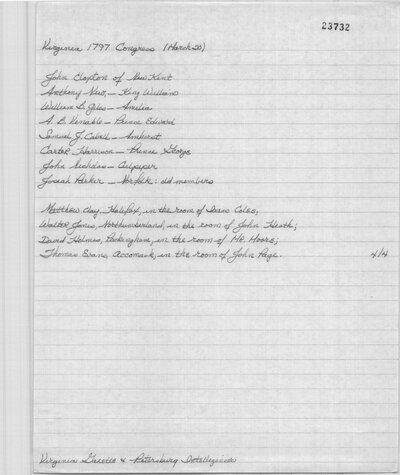 23732
Virginia 1797 Congress (March 20)
John Clopton of New Kent
Anthony New, — King William
William B. Giles — Amelia
A. B. Venable — Prince Edward
Samuel J. Cabell — Amherst
Carter Harrison — Prince George
John Nicholas — Culpeper
Josiah Parker — Norfolk: old members
Matthew Clay, Halifax, in the room of Isaac Coles;
Walter Jones, Northumberland, in the room of John Heath;
David Holmes, Rockingham, in the room of Mr. Moore;
Thomas Evans, Accomack, in the room of John Page. 4/4
Virginia Gazette & Petersburg Intelligencer